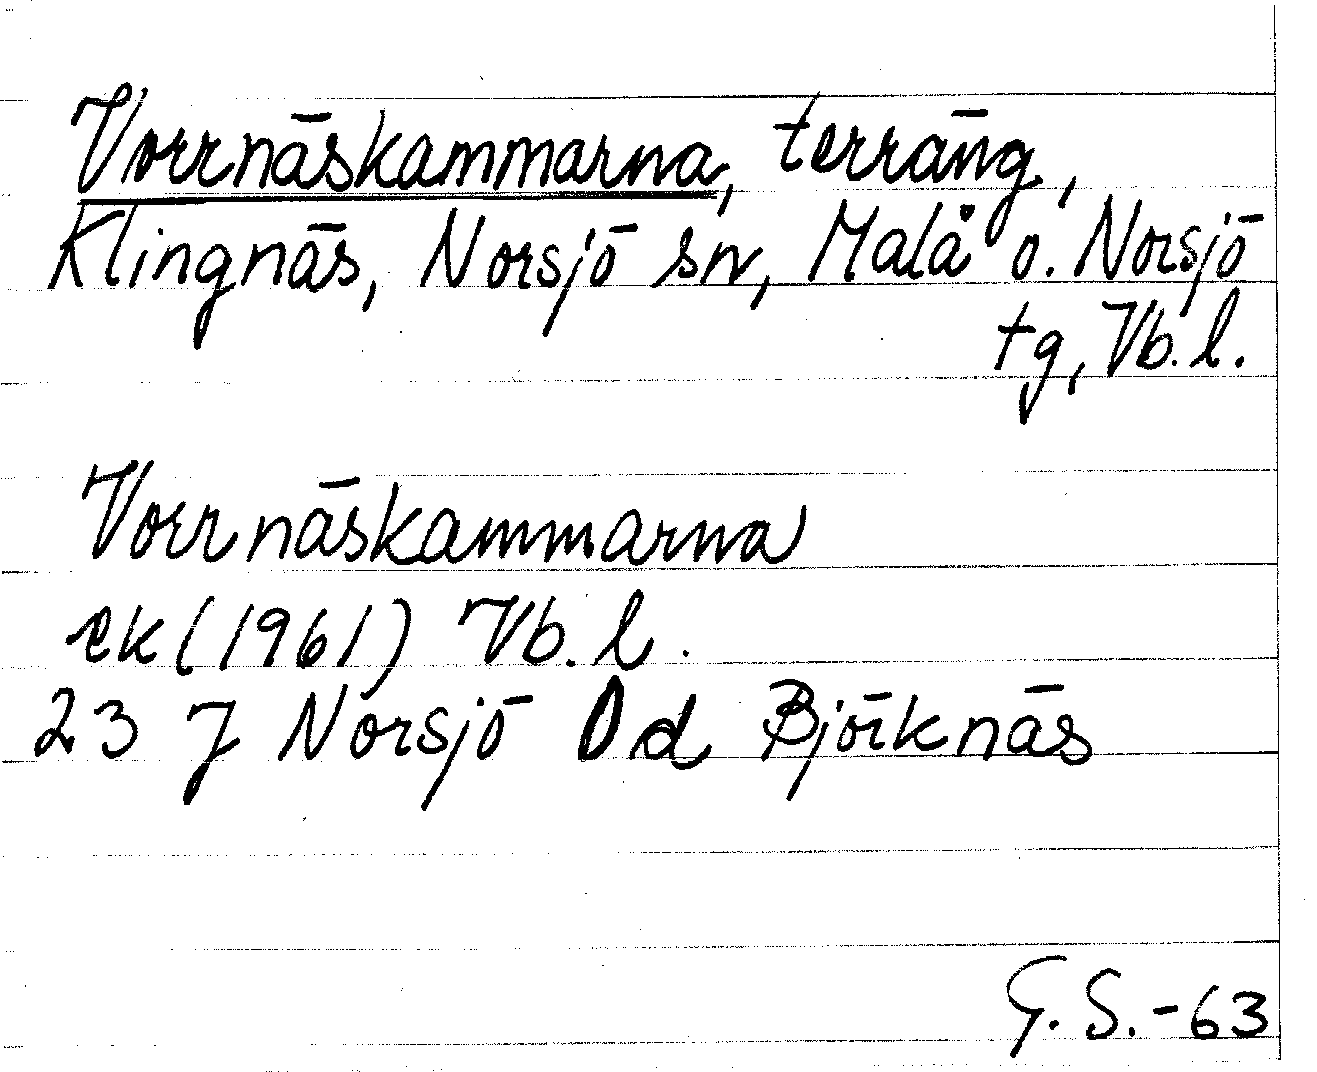 Vorrnäskammarna, terräng,
Klingnäs, Norsjö sn, Malå o. Norsjö
tg, Vb. l.
Vorrnäskammarna
ek (1961) Vb. l.
23 J Norsjö 0 d Björknäs
G. S. -63